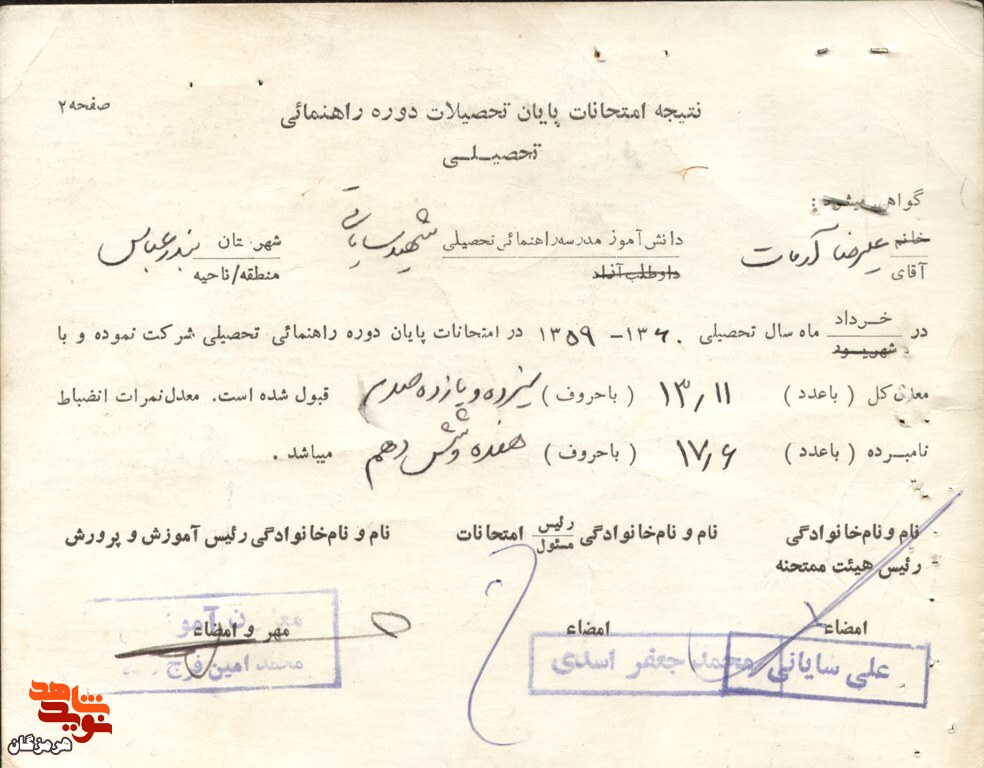 صفحه ۲
نتیجه امتحانات پایان تحصیلات دوره راهنمائی
تحصیلـی
گواهی میشود :
خانم
آقای
علیرضا
دانش آموز مدرسه راهنمائی تحصیلی
داوطلب آزاد
شهید
شهرستان
منطقه/ناحیه
بندرعباس
در
خرداد
شهریور
ماه سال تحصیلی ۱۳۶۰ - ۱۳۵۹ در امتحانات پایان دوره راهنمائی تحصیلی شرکت نموده و با
معدل کل ( باعدد ) ۱۳٫۱۱ ( باحروف ) سیزده و یازده صدم قبول شده است. معدل نمرات انضباط
نامبرده ( باعدد ) ۱۷٫۶ ( باحروف ) هفده و شش دهم میباشد .
نام و نام خانوادگی
رئیس هیئت ممتحنه
نام و نام خانوادگی رئیس
مسئول
امتحانات
نام و نام خانوادگی رئیس آموزش و پرورش
امضاء
امضاء
مهر و امضاء
علی سایانی
محمد جعفر اسدی
محمد امین فرج
نوید شاهد
هرمزگان